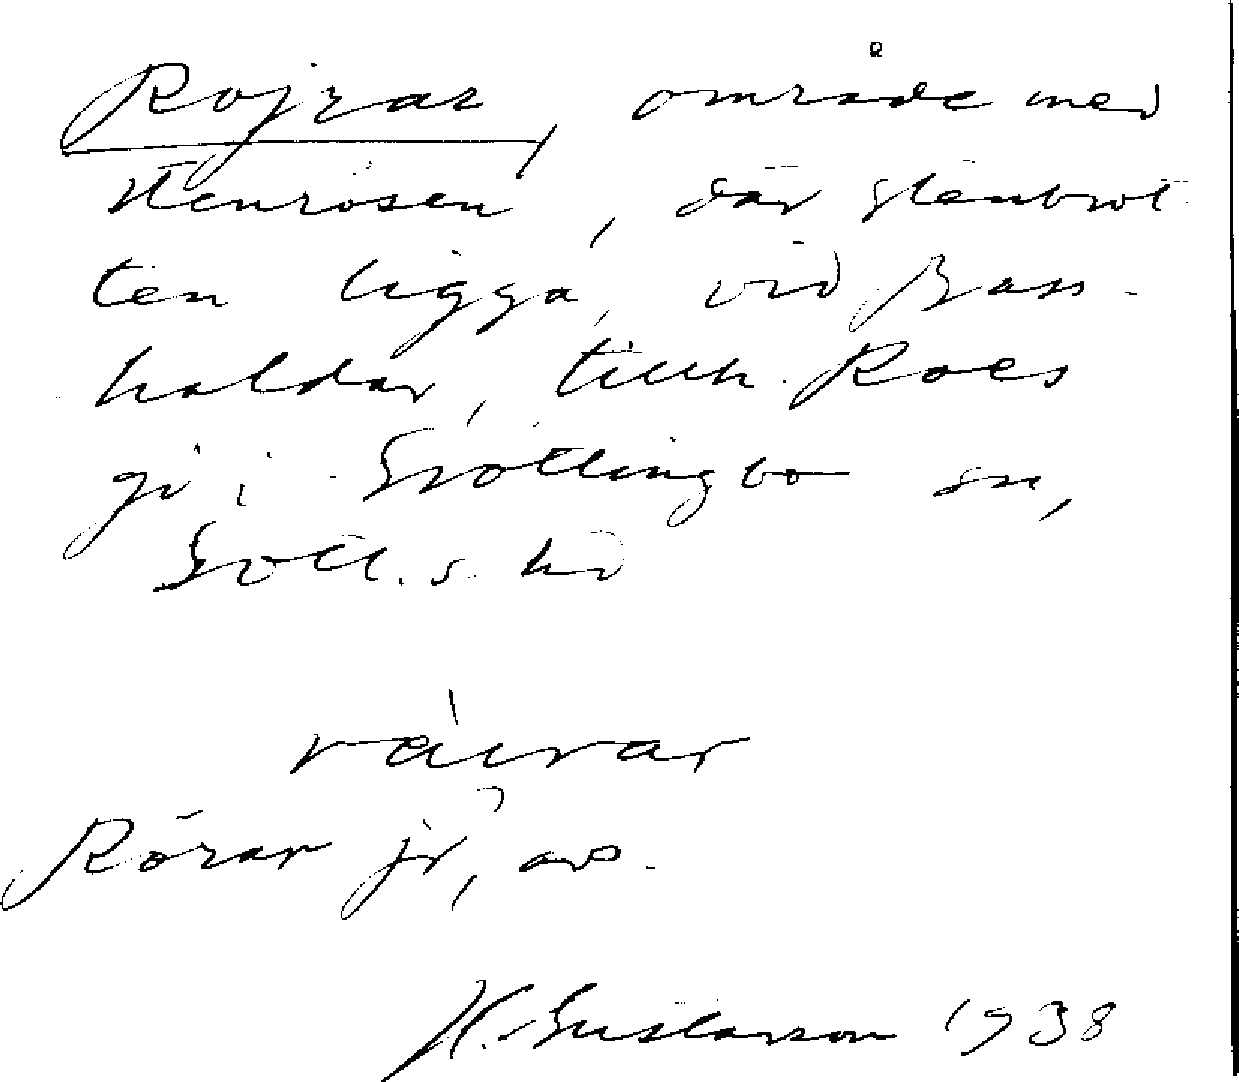 Rojrar, område med
stenrösen, där stenbrot
ten ligga, vid Bass-
haldar, tillh. Roes
gd i Grötlingbo sn,
Gotl. s. hd
ráurar
Rörar jr, as.
H. Gustavson 1938